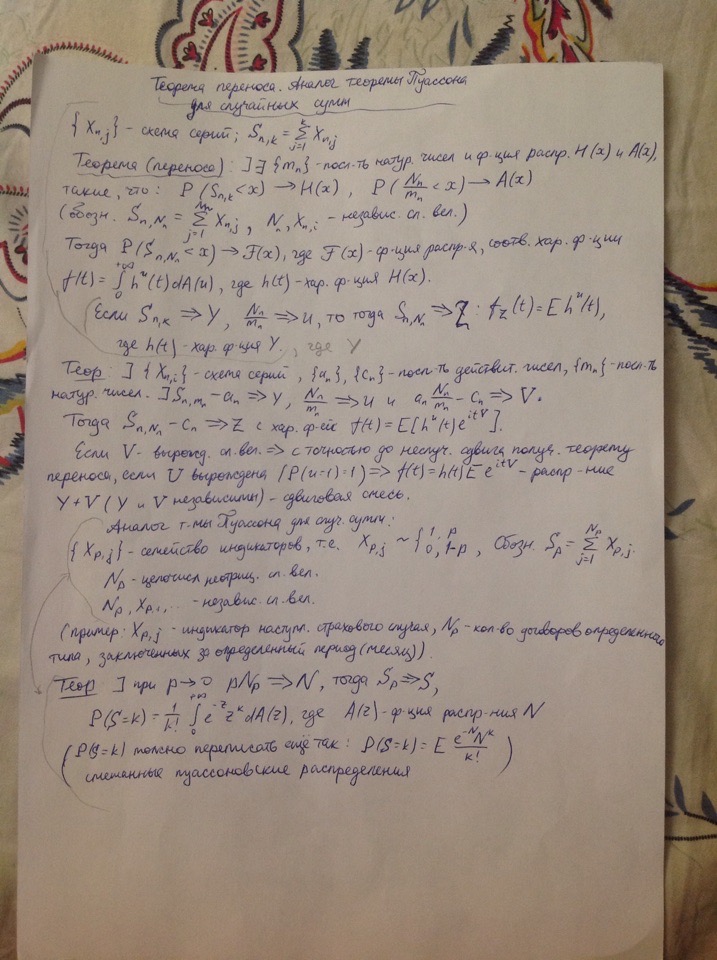 Теорема переноса. Аналог теоремы Пуассона
для случайных сумм
{X_{n,j}} - схема серий; S_{n,k} = ∑_{j=1}^{k} X_{n,j}
Теорема (переноса): ] ∃ {m_n} - посл-ть натур. чисел и ф-ция распр. H(x) и A(x),
такие, что: P(S_{n,k} < x) → H(x), P(N_n/m_n < x) → A(x)
(обозн. S_{n,N_n} = ∑_{j=1}^{N_n} X_{n,j}, N_n, X_{n,i} - независ. сл. вел.)
Тогда P(S_{n,N_n} < x) → F(x), где F(x) - ф-ция распр-я, соотв. хар. ф-ции
f(t) = ∫_0^{+∞} h^u(t) dA(u), где h(t) - хар. ф-ция H(x).
Если S_{n,k} ⇒ Y, N_n/m_n ⇒ u, то тогда S_{n,N_n} ⇒ Z: f_Z(t) = E h^u(t),
где h(t) - хар. ф-ция Y., где Y
Теор: ] {X_{n,i}} - схема серий, {a_n}, {c_n} - посл-ть действит. чисел, {m_n} - посл-ть
натур. чисел. ] S_{n,m_n} - a_n ⇒ Y, N_n/m_n ⇒ u и a_n N_n/m_n - c_n ⇒ V.
Тогда S_{n,N_n} - c_n ⇒ Z с хар. ф-ей f(t) = E[h^u(t) e^{itV}].
Если V - вырожд. сл. вел. ⇒ с точностью до неслуч. сдвига получ. теорему
переноса, если U вырождена (P(u=1)=1) ⇒ f(t) = h(t) E e^{itV} - распр-ние
Y+V (Y и V независимы) - сдвиговая смесь.
Аналог т-мы Пуассона для случ. сумм:
{X_{p,j}} - семейство индикаторов, т.е. X_{p,j} ~ {1, p; 0, 1-p, Обозн. S_p = ∑_{j=1}^{N_p} X_{p,j}.
N_p - целочисл. неотриц. сл. вел.
N_p, X_{p,1}, ... - независ. сл. вел.
(пример: X_{p,j} - индикатор наступл. страхового случая, N_p - кол-во договоров определенного
типа, заключенных за определенный период (месяц)).
Теор ] при p→0 pN_p ⇒ N, тогда S_p ⇒ S,
P(S=k) = 1/k! ∫_0^{+∞} e^{-z} z^k dA(z), где A(z) - ф-ция распр-ния N
(P(S=k) можно переписать ещё так: P(S=k) = E e^{-N}N^k/k!)
смешанные пуассоновские распределения